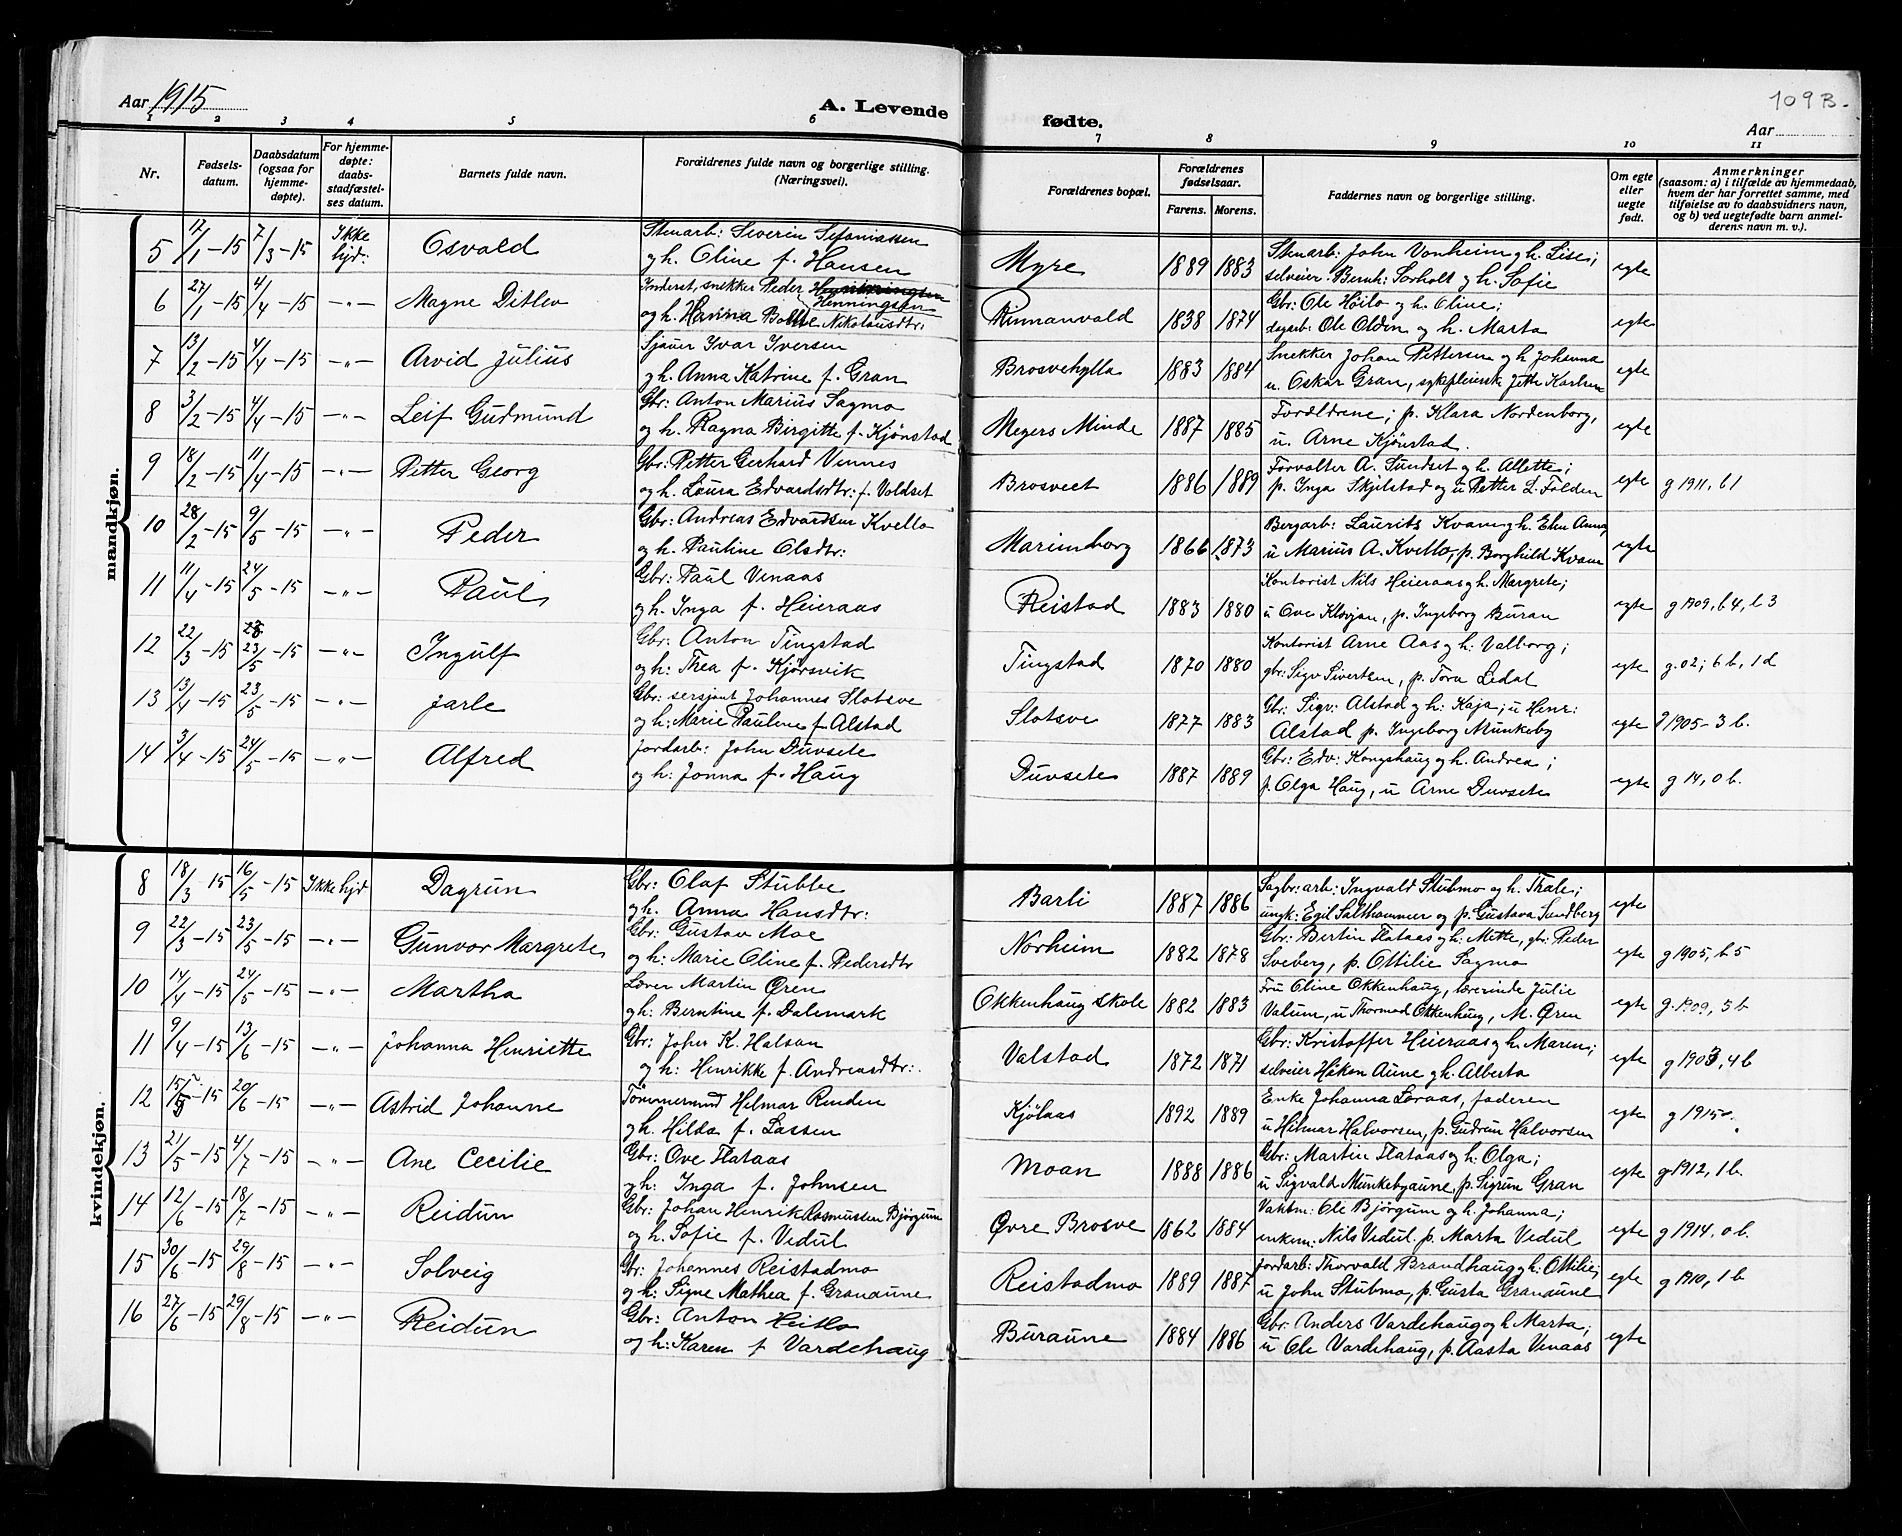 Aar 1915
A. Levende
fødte.
109 B.
Aar
1 2 3 4 5 6 7 8 9 10 11
Nr.
Fødsels-
datum.
Daabsdatum
(ogsaa for
hjemme-
døpte).
For hjemme-
døpte:
daabs-
stadfæstel-
ses datum.
Barnets fulde navn.
Forældrenes fulde navn og borgerlige stilling.
(Næringsvei).
Forældrenes bopæl.
Forældrenes
fødselsaar.
Farens. Morens.
Faddernes navn og borgerlige stilling.
Om egte
eller
uegte
født.
Anmerkninger
(saasom: a) i tilfælde av hjemmedaab,
hvem der har forrettet samme, med
tilføielse av to daabsvidners navn,
og b) ved uegtefødte barn anmel-
derens navn m. v.).
mandkjøn.
5 12/1-15 7/3-15 Ikke hjd: Osvald Stenarb: Severin Sefaniassen
og h. Oline f. Hansen Myre 1889 1883 Stenarb: John Vonheim og h. Lise;
selveier Bernh: Sorholt og h. Sofie egte
6 27/1-15 4/4-15 -"- Magne Ditlev Inderst, snekker Peder Henningsen
og h. Hanna Nikolausdtr: Rinnanvald 1838 1874 Gbr: Ole Höilo og h. Oline;
dagarb: Ole Olden og h. Marta egte
7 13/2-15 4/4-15 -"- Arvid Julius Sjauer Ivar Iversen
og h. Anna Katrine f. Gran Brosvehylla 1883 1884 Snekker Johan Pettersen og h. Johanna
u. Oskar Gran, sykepleierske Jette Karlsen egte
8 3/2-15 4/4-15 -"- Leif Gudmund Gbr: Anton Marius Sagmo
og h. Ragna Birgitte f. Kjönstad Meyers Minde 1887 1885 Forældrene; p. Klara Nordenborg,
u. Arne Kjönstad. egte
9 18/2-15 11/4-15 -"- Petter Georg Gbr: Petter Gerhard Vennes
og h. Laura Edvardsdtr: f. Voldset Brosveet 1886 1889 Forvalter A. Sundset og h. Allette;
p. Inga Skjelstad og u Petter L. Folden egte g 1911, b 1
10 28/2-15 9/5-15 -"- Peder Gbr: Andreas Edvardsen Kvello
og h. Pauline Olsdtr: Marienborg 1866 1873 Bergarb: Laurits Kvam og h. Elen Anna,
u Marius A. Kvello, p. Borghild Kvam egte
11 11/4-15 24/5-15 -"- Paul Gbr: Paul Venaas
og h. Inga f. Heieraas Reistad 1883 1880 Kontorist Nils Heieraas og h. Margrete;
u Ove, p. Ingeborg Buran egte g 1909, b 4, l 3
12 22/3-15 23/5-15 -"- Ingulf Gbr: Anton Tingstad
og h: Thea f. Kjörsvik Tingstad 1870 1880 Kontorist Arne Aas og h: Valborg;
gbr: Sigv Sivertsen, p. Tora Ledal egte g. 02; 6 b, 1 d
13 13/4-15 23/5-15 -"- Jarle Gbr: sersjant Johannes Slotsve
og h: Marie Pauline f. Alstad Slotsve 1877 1883 Gbr: Sigv: Alstad og h: Kaja; u Henr:
Alstad p. Ingeborg Munkeby egte g 1905 - 3 b.
14 3/4-15 24/5-15 -"- Alfred Jordarb: John Duvsete
og h: Jonna f. Haug Duvsete 1887 1889 Gbr: Edv: Kongshaug og h. Andrea;
p. Olga Haug, u Arne Duvsete egte g 14, 0 b.
kvindekjøn.
8 18/3-15 16/5-15 Ikke hjd Dagrun Gbr: Olaf Stubbe
og h. Anna Hansdtr: Barli 1887 1886 Sagbr: arb: Ingvald Stubmo og h. Thale;
ungk: Egil Salthammer og p. Gustava Sandberg egte
9 22/3-15 23/5-15 -"- Gunvor Margrete Gbr: Gustav Moe
og h: Marie Oline f. Pedersdtr Norheim 1882 1878 Gbr: Bertin Flataas og h: Mette, gbr: Peder
Sveberg, p. Ottilie Sagmo egte g 1905, b 5
10 14/4-15 24/5-15 -"- Martha Lærer Martin Øren
og h: Berntine f. Dalemark Okkenhaug skole 1882 1883 Fru Oline Okkenhaug, lærerinde Julie
Valum, u Thormod Okkenhaug, M. Øren egte g. 1909, 5 b
11 9/4-15 13/6-15 -"- Johanna Henriette Gbr: K. Halsan
og h: Henrikke f. Andreasdtr: Valstad 1872 1871 Gbr: Kristoffer Heieraas og h. Maren;
selveier Håkon Aune og h. Alberta egte g 1903, 4 b
12 15/5-15 20/6-15 -"- Astrid Johanne Tömmermand Hilmar Rinden
og h. Hilda f. Lassen Kjölaas 1892 1889 Enke Johanna Loraas, faderen
u Hilmar Halvorsen, p. Gudrun Halvorsen egte g 1915
13 21/5-15 4/7-15 -"- Ane Cecilie Gbr: Ove Flataas
og h: Inga f. Johnsen Moan 1888 1886 Gbr: Martin Flataas og h: Olga;
u Sigvald Munkebyaune, p. Sigrun Gran egte g 1912, 1 b.
14 12/6-15 18/7-15 -"- Reidun Gbr: Johan Henrik Rasmussen Bjørgum
og h. Sofie f. Vedul Øvre Brosve 1862 1884 Vaktm: Ole Bjørgum og h. Johanna;
enkem: Nils Vedul. p. Marta Vedul egte g 1914, 0 b.
15 30/6-15 29/8-15 -"- Solveig Gbr: Johannes Reistadmo
og h: Signe Mathea f. Granaune Reistadmo 1889 1887 Jordarb: Thorvald Brandhaug og h: Ottilie;
u John Stubmo, p. Gusta Granaune egte g 1910, 1 b
16 27/6-15 29/8-15 -"- Reidun Gbr: Anton Heitlo
og h: Karen f Vardehaug Buraune 1884 1886 Gbr: Anders Vardehaug og h Marta;
u Ole Vardehaug, p. Aasta Venaas egte